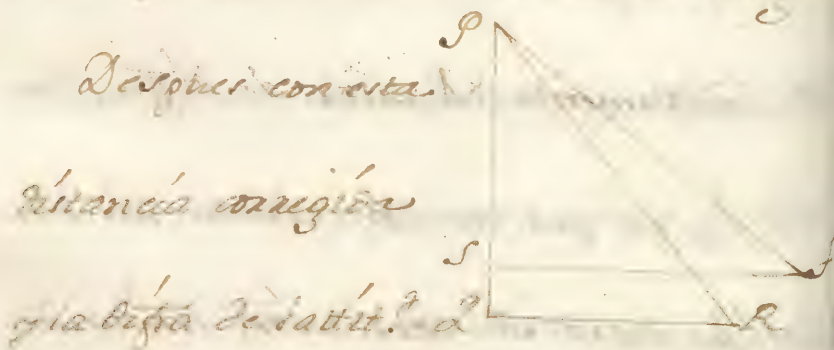 P
Despues con esta
distancia corregida
S
y la difra de latit.ᵈ 2 R